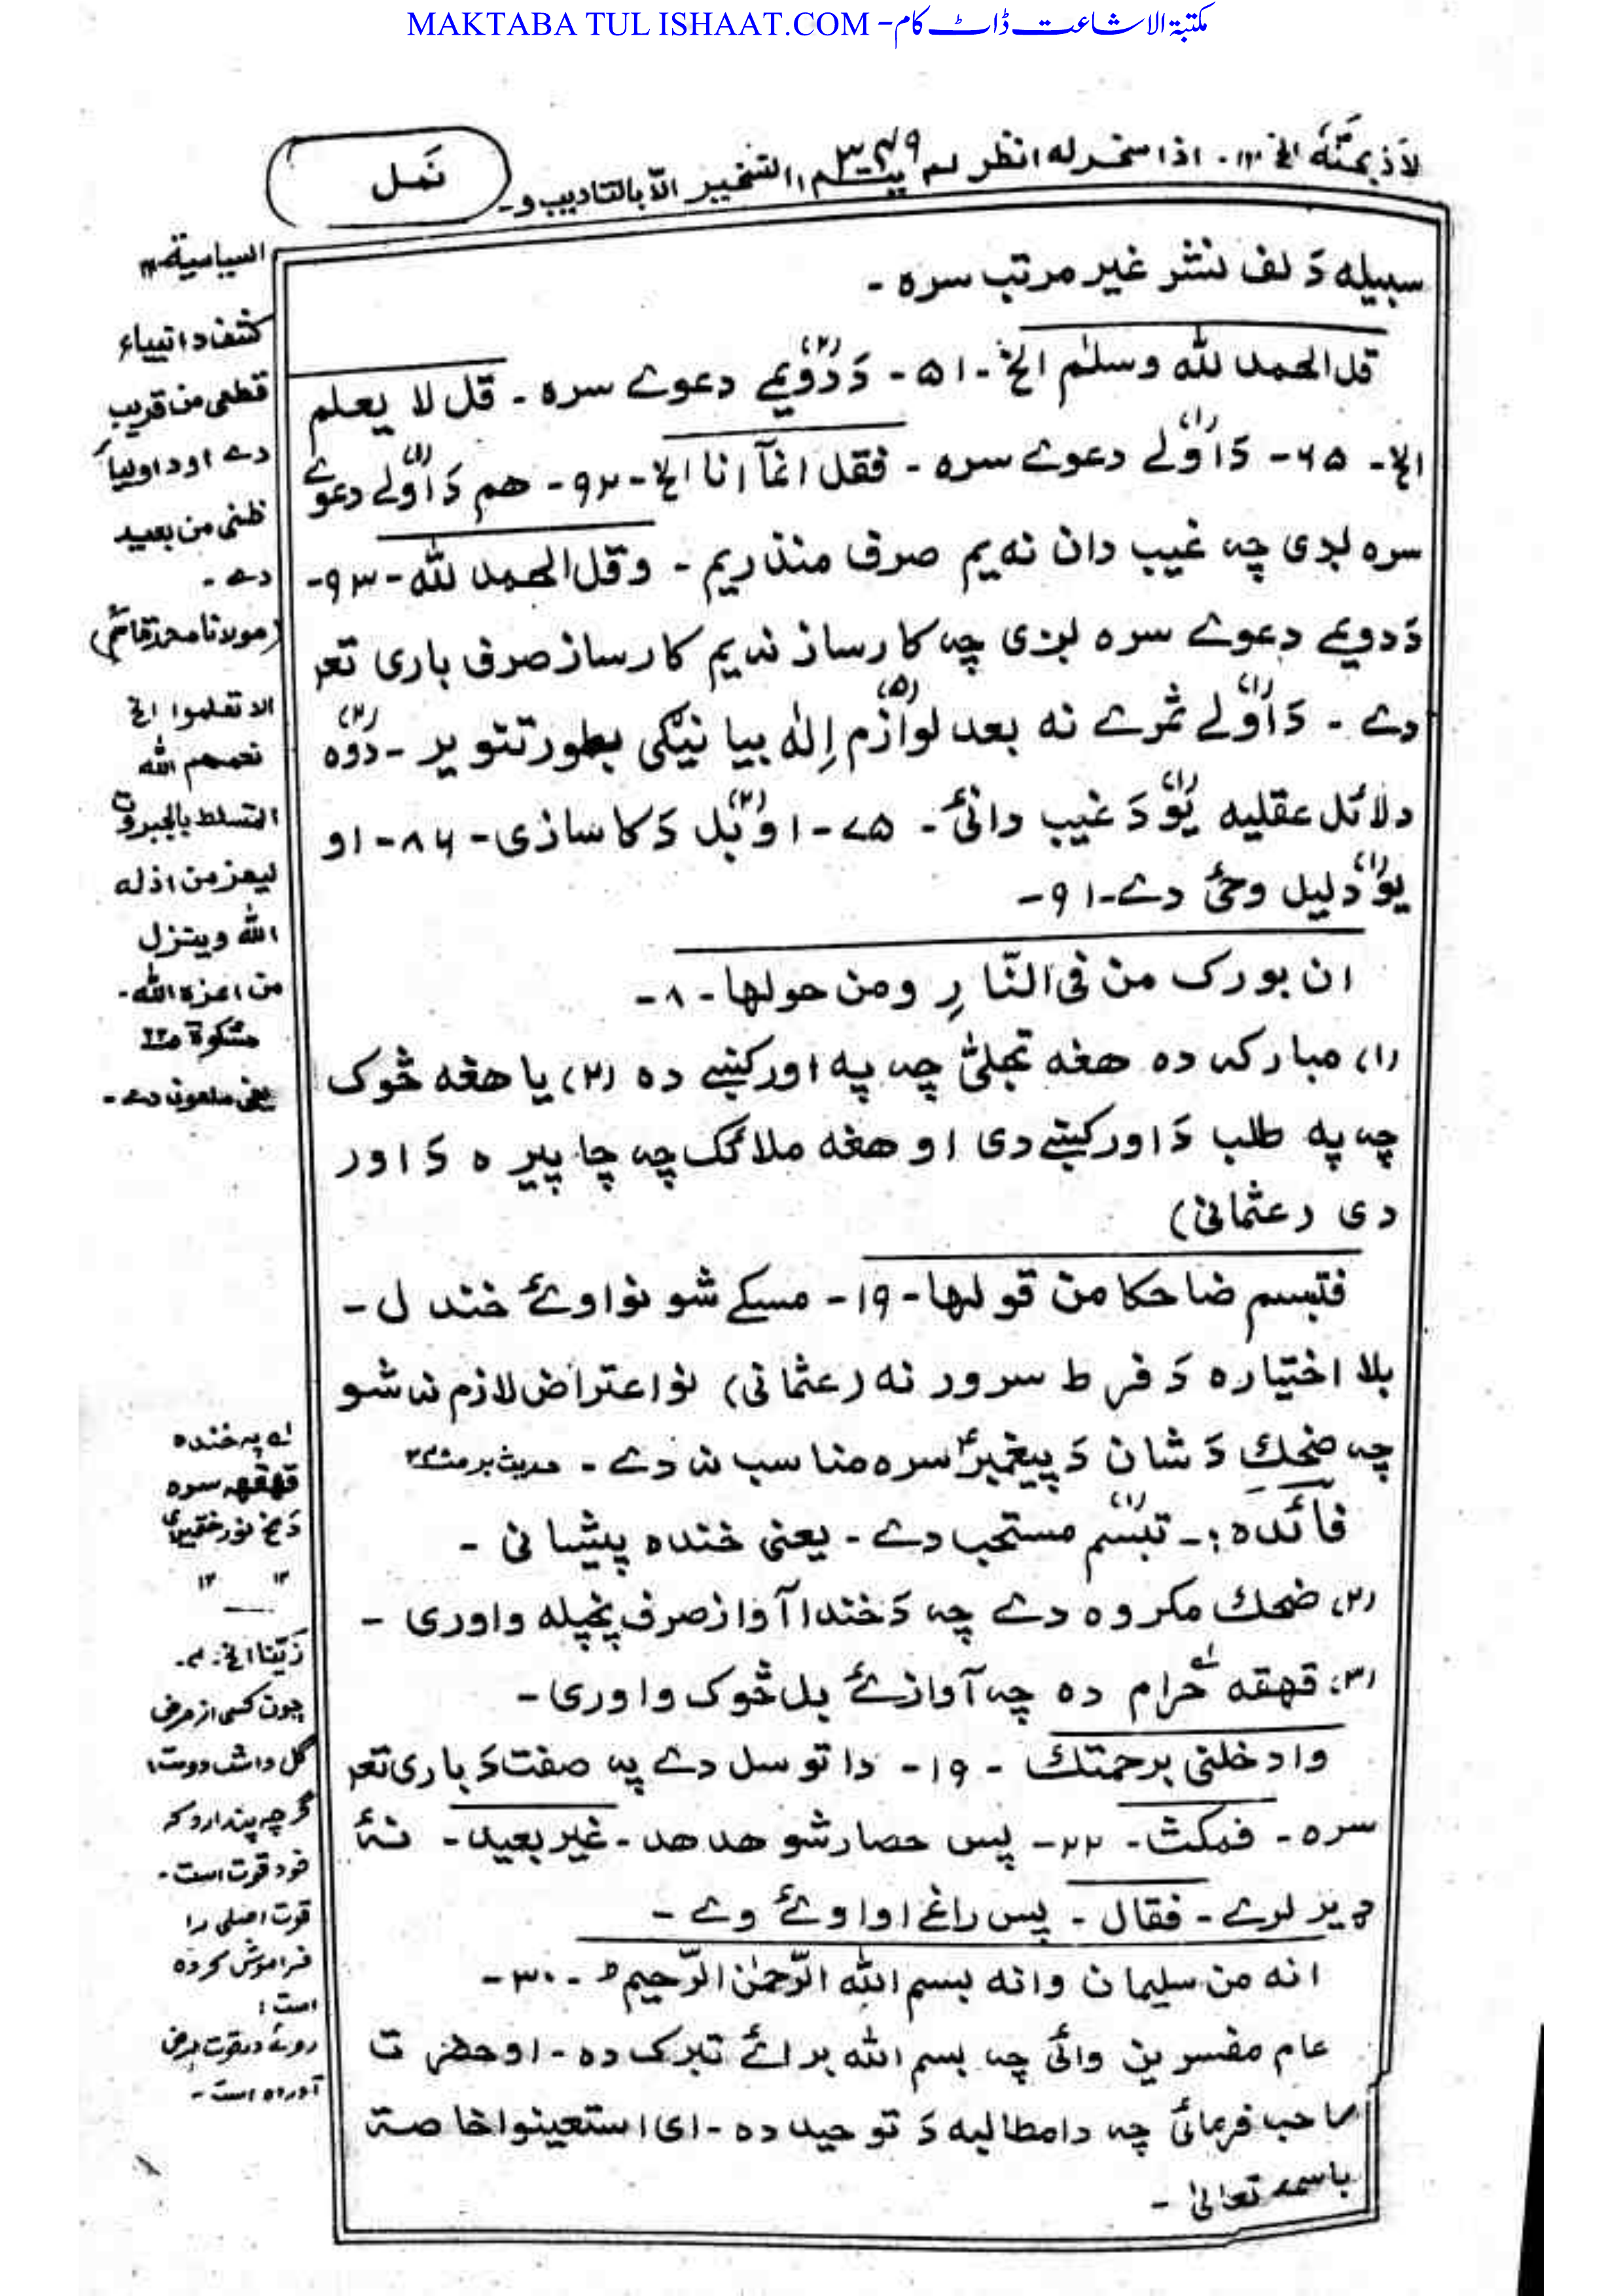 MAKTABA TUL ISHAAT.COM - مکتبۃ الاشاعت ڈاٹ کام
الخ ۲۱- اذا سخر له انظر لم يتم التسخير الا بالتاديب و-
۳۷۹
نَمل
سبیله دَ لف نشر غیر مرتب سره -
قل الحمد لله وسلٰم الخ - ۵۱ - دَ دوِّیمے (۲) دعوے سره - قل لا یعلم
الخ - ۶۵ - دَ اوّلے (۱) دعوے سره - فقل انمآ انا الخ - ۹۲ - هم دَ اوّلے (۱) دعوے
سره لږی چه غیب دان نه یم صرف منذر یم - وقل الحمد لله - ۹۳ -
دَ دویمے دعوے سره لږی چه کارساز نه یم کارساز صرف باری تعہ
دے - دَ اوّلے (۱) ثمرے نه بعد لوازم (۵) اِلٰه بیا نیګی بطور تنویر - دوه (۲)
دلائل عقلیه یوّ (۱) دَ غیب دانئ - ۷۵ - او بّل (۲) دَ کاسازی - ۸۶ - او
یوّ (۱) دلیل وحئ دے - ۹۱ -
ان بورک من فی النّارِ ومن حولها - ۸ -
(۱) مبارکه ده هغه تجلئ چه په اور کښے ده (۲) یا هغه څوک
چه په طلب دَ اور کښے دی او هغه ملائک چه چاپیره دَ اور
دی (عثمانی)
فتبسم ضاحکا من قولها - ۱۹ - مسکے شو نو اوئے خندل -
بلا اختیاره دَ فرط سرور نه (عثمانی) نو اعتراض لازم نه شو
چه ضحك دَ شان دَ پیغمبرؑ سره مناسب نه دے - حدیث بر
فائده :- تبسّم (۱) مستحب دے - یعنی خنده پیشانی -
(۲) ضحك مکروه دے چه دَ خندا آواز صرف پخپله واوری -
(۳) قهقه حرام ده چه آواز ئے بل څوک واوری -
وادخلنی برحمتك - ۱۹ - دا توسل دے په صفت دَ باری تعہ
سره - فمکث - ۲۲ - پس حصار شو هد هد - غیر بعید - نهٔ
ډیر لرے - فقال - پس راغے او اوئے وے -
انه من سلیمان وانه بسم الله الرّحمٰن الرّحیم ط - ۳۰ -
عام مفسرین وائی چه بسم الله برائے تبرک ده - او حضرت
صاحب فرمائی چه دا مطالبه دَ توحید ده - ای استعینوا خاصة
باسمه تعالیٰ -
السیاسیة ۱۲
کشف د انبیاء
قطعی من قریب
دے او د اولیاء
ظنی من بعید
دے -
(مولانا محمد قاسمؒ)
الا تعلوا الخ
الله
المتسلط بالجبروت
لیعز من اذله
الله ویذل
من اعزه الله -
مشکوة
یعنی ملعون دے -
په خنده
قهقهه سره
دَ مخ نور
۱۲ ۱۲
زَیّنا الخ - ۴ -
چون کسی از مرض
گل داشت دوست
گرچه پندارد که
خود قوت است -
قوت اصلی را
فراموش کرده
است :
روئے در قوت مرض
آورده است -